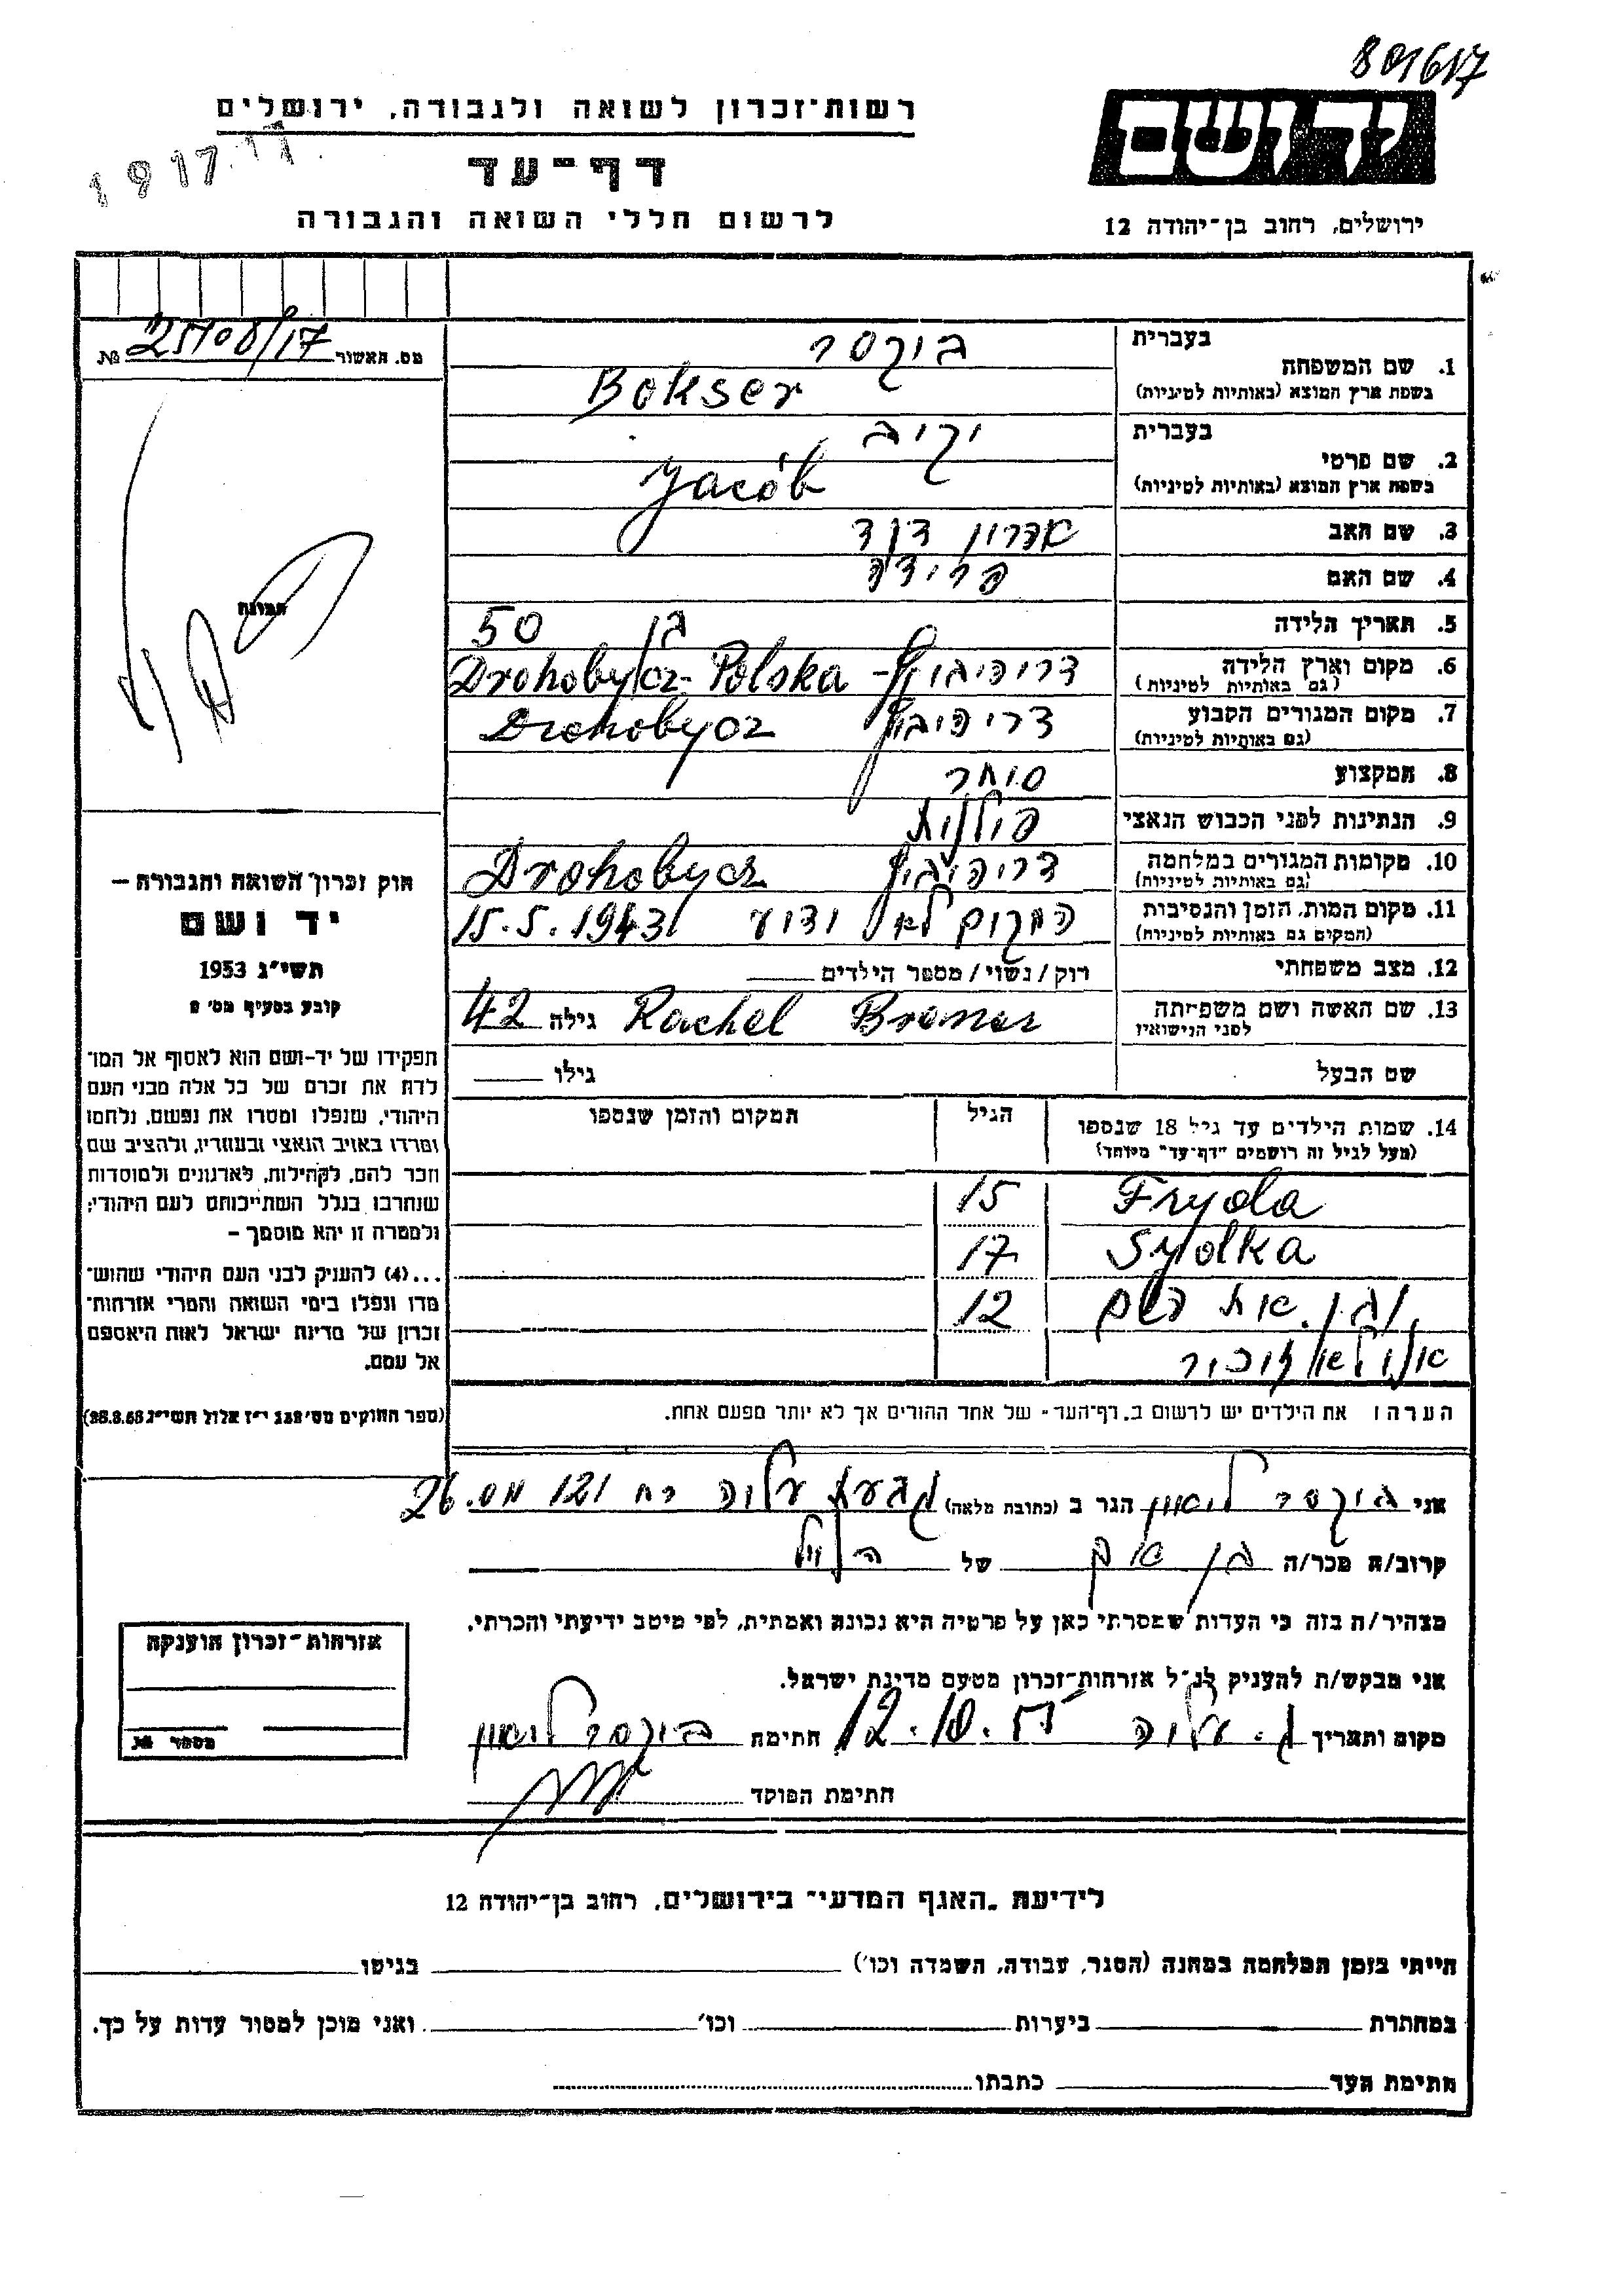 801617
רשות-זכרון לשואה ולגבורה, ירושלים
דף-עד
לרשום חללי השואה והגבורה
יד ושם
ירושלים, רחוב בן-יהודה 12
1917
מס. האשור 25108/17 №
בעברית בוקסר
1. שם המשפחה
בשפת ארץ המוצא (באותיות לטיניות) Bokser
בעברית יקוב
2. שם פרטי
בשפת ארץ המוצא (באותיות לטיניות) Jacób
3. שם האב אהרון דוד
4. שם האם פרידה
5. תאריך הלידה בן 50
6. מקום וארץ הלידה
(גם באותיות לטיניות) דרוהוביץ - Drohobycz - Polska
7. מקום המגורים הקבוע
(גם באותיות לטיניות) דרוהוביץ Drohobycz
8. המקצוע סוחר
9. הנתינות לפני הכבוש הנאצי פולנית
10. מקומות המגורים במלחמה
(גם באותיות לטיניות) דרוהוביץ Drohobycz
11. מקום המות, הזמן והנסיבות
(המקום גם באותיות לטיניות) המקום לא ידוע 15.5.1943
12. מצב משפחתי רוק/נשוי/מספר הילדים
13. שם האשה ושם משפחתה
לפני הנישואין Rachel Bremer גילה 42
שם הבעל גילו
14. שמות הילדים עד גיל 18 שנספו
(מעל לגיל זה רושמים "דף-עד" מיוחד)
הגיל
המקום והזמן שנספו
Fryda 15
Sydlka 17
ובן. את השם 12
אני לא זוכר
הערה: את הילדים יש לרשום ב"דף-העד" של אחד ההורים אך לא יותר מפעם אחת.
תמונה
חוק זכרון השואה והגבורה –
יד ושם
תשי"ג 1953
קובע בסעיף מס' 2
תפקידו של יד-ושם הוא לאסוף אל המו-
לדת את זכרם של כל אלה מבני העם
היהודי, שנפלו ומסרו את נפשם, נלחמו
ומרדו באויב הנאצי ובעוזריו, ולהציב שם
וזכר להם, לקהילות, לארגונים ולמוסדות
שנחרבו בגלל השתייכותם לעם היהודי;
ולמטרה זו יהא מוסמך –
...(4) להעניק לבני העם היהודי שהוש-
מדו ונפלו בימי השואה והמרי אזרחות-
זכרון של מדינת ישראל לאות היאספם
אל עמם.
(ספר החוקים מס' 132 י"ז אלול תשי"ג 28.8.53)
אני בוקסר ליאון הגר ב (כתובת מלאה) גבעת עליה רח 121 מס. 26
קרוב/ה מכר/ה בן אח של הנ"ל
מצהיר/ה בזה כי העדות שמסרתי כאן על פרטיה היא נכונה ואמתית, לפי מיטב ידיעתי והכרתי.
אני מבקש/ת להעניק לנ"ל אזרחות-זכרון מטעם מדינת ישראל.
מקום ותאריך ג. עליה 12.10.55 חתימה בוקסר ליאון
חתימת הפוקד
אזרחות-זכרון הוענקה
מספר №
לידיעת "האגף המדעי" בירושלים, רחוב בן-יהודה 12
הייתי בזמן המלחמה במחנה (הסגר, עבודה, השמדה וכו') בגיטו
במחתרת ביערות וכו' ואני מוכן למסור עדות על כך.
חתימת העד כתבתו